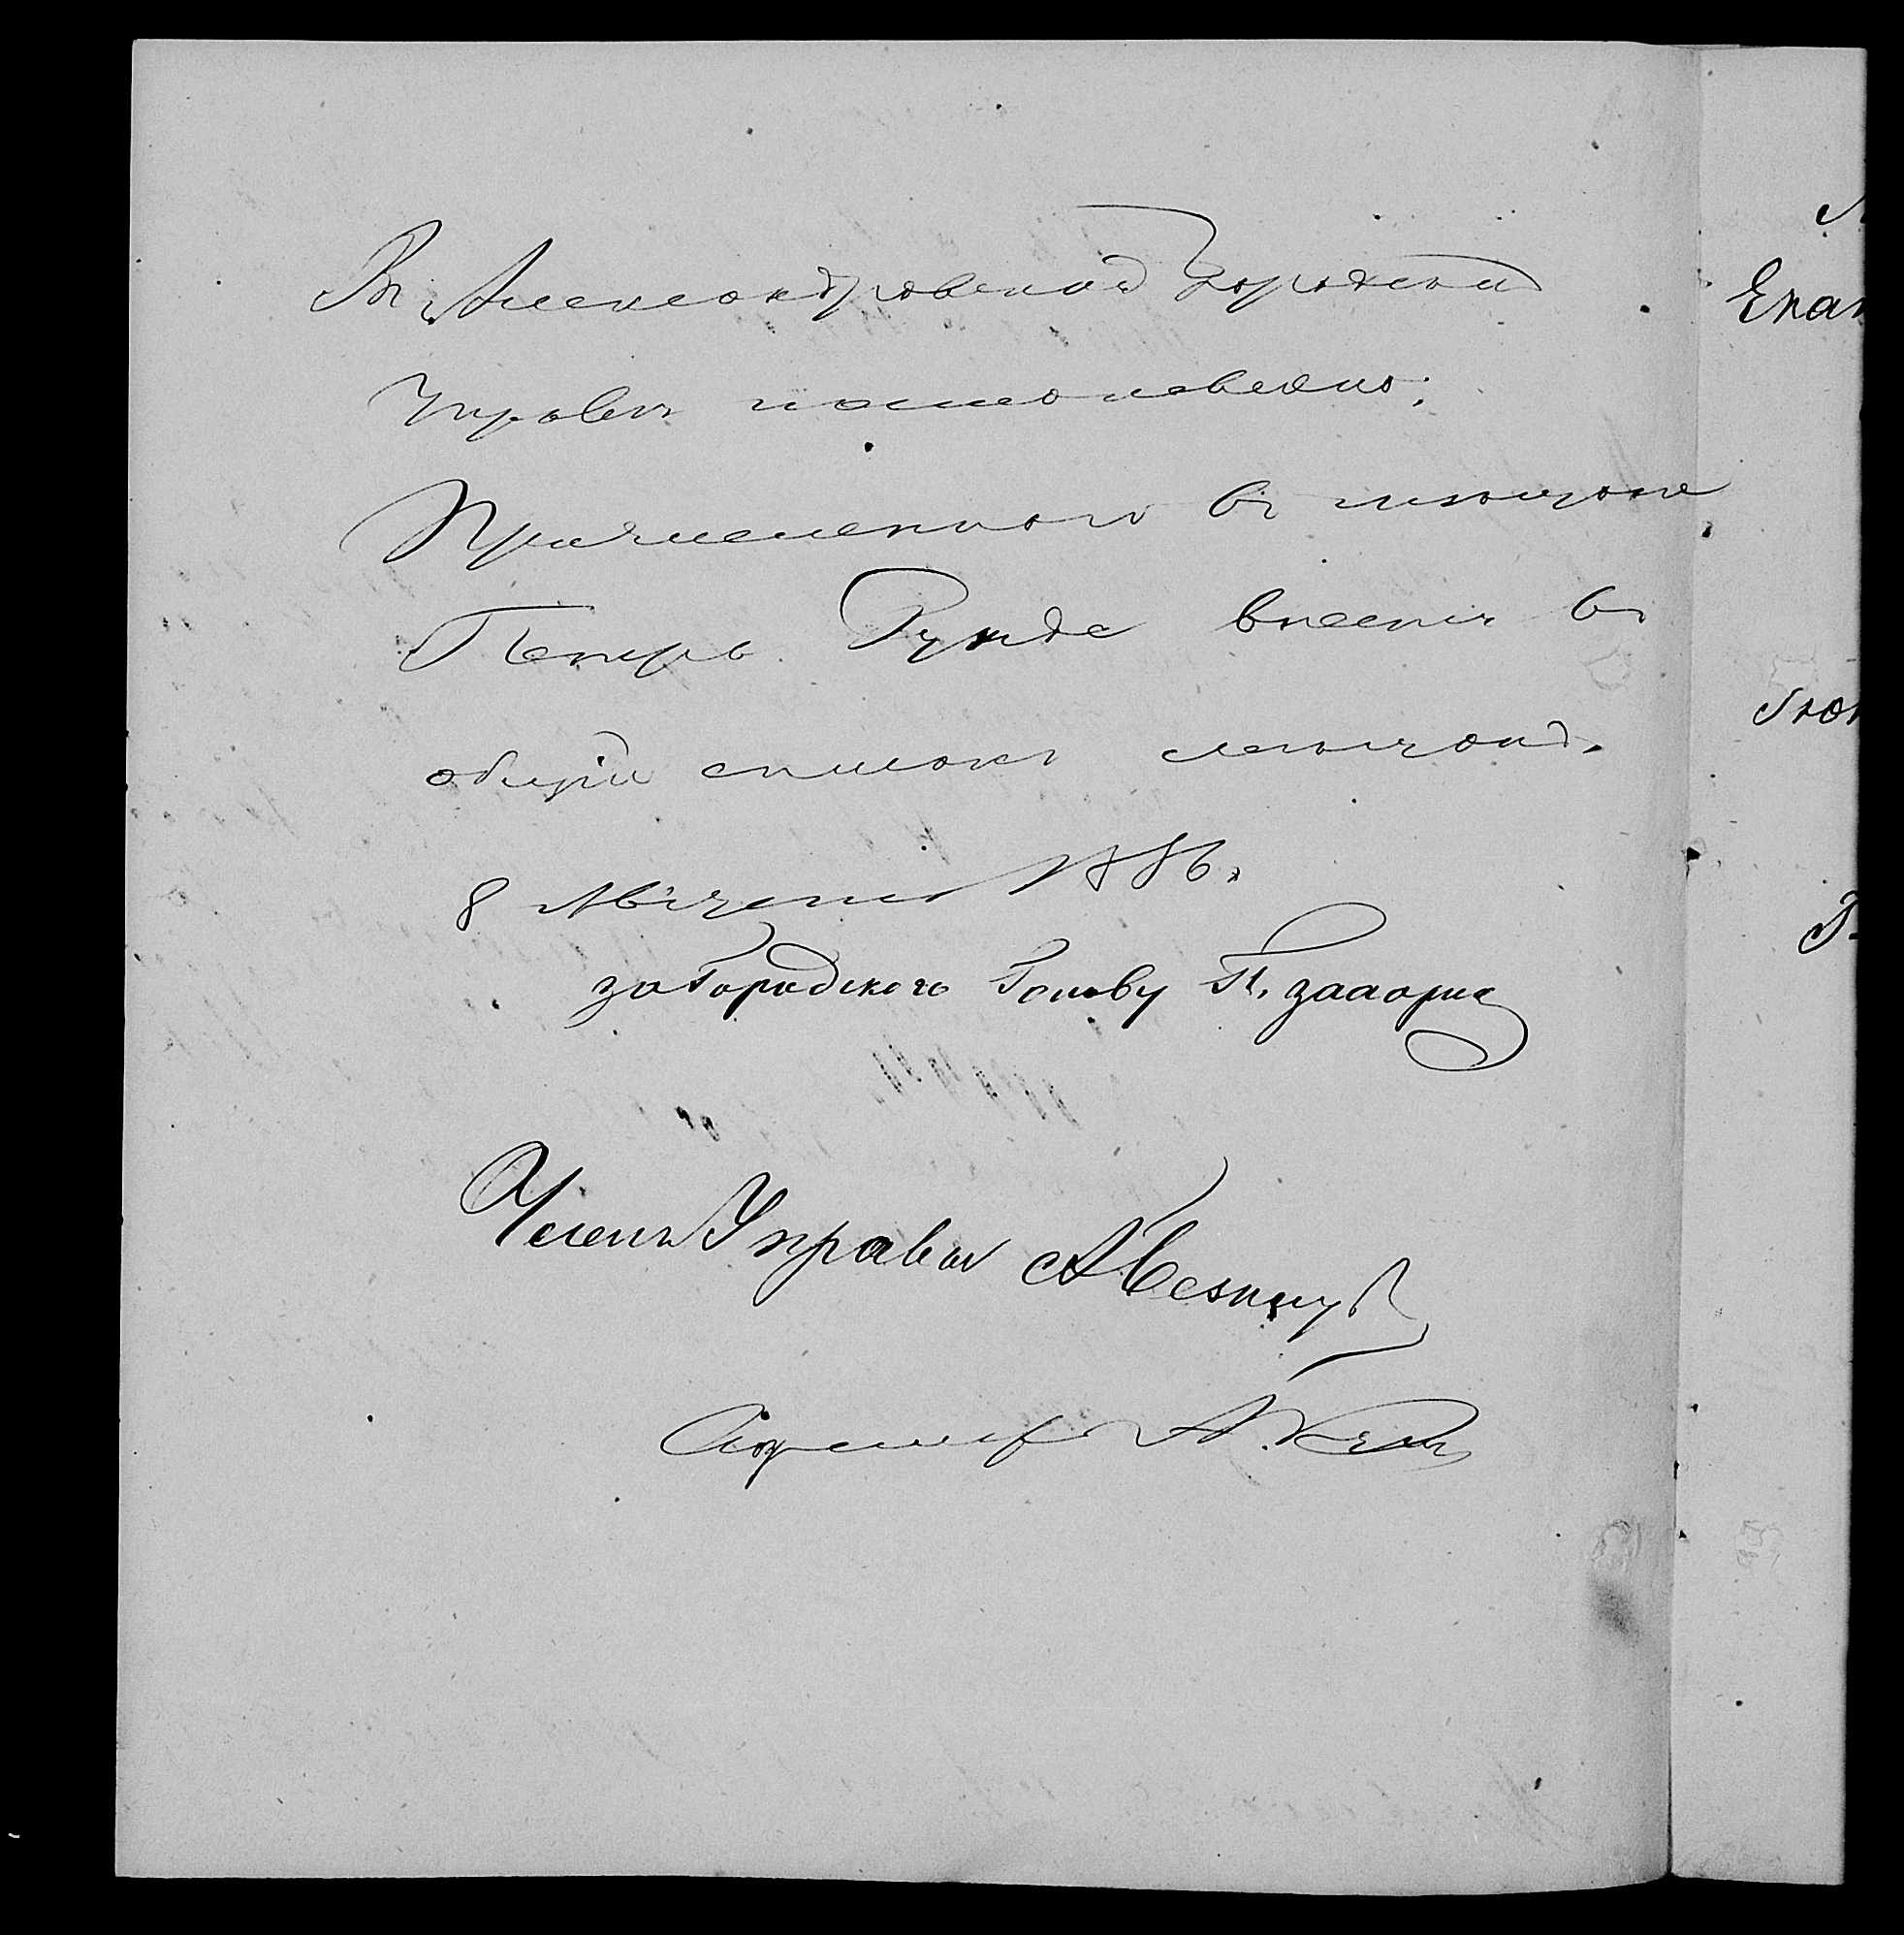 Въ Александровской Городской
Управѣ постановлено:
Причисленнаго въ мѣщане
Петръ Рунде внести въ
общій списокъ мѣщанъ.
8 Августа 1886.
за Городского Голову П.
Членъ Управы А
Секретарь А.
Екат